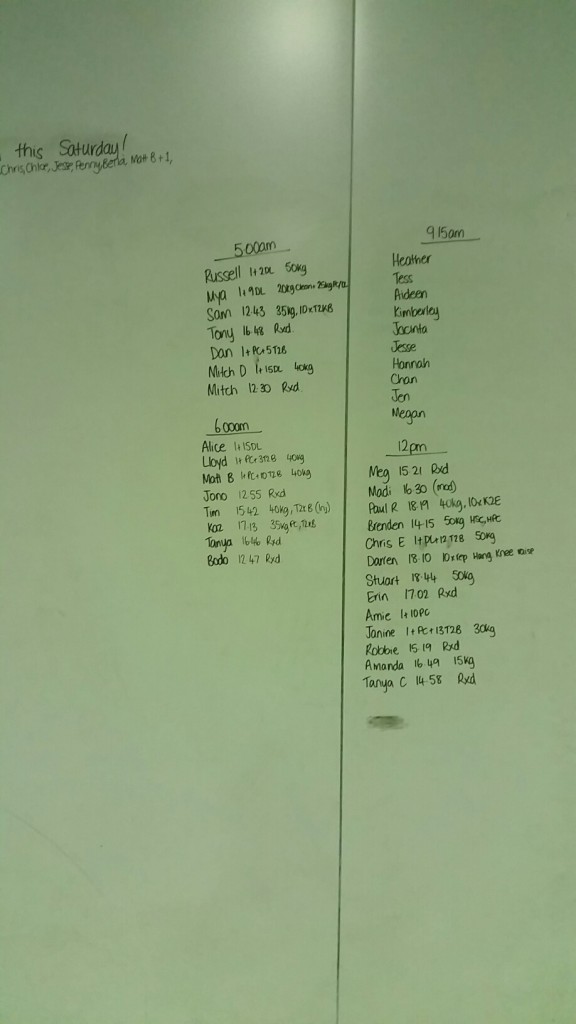 this Saturday!
Chris, Chloe, Jesse, Penny, Berla, Matt B + 1,
5:00am
Russell 1+2DL 50kg
Mya 1+9DL 20kg Clean + 25kg
Sam 12:43 35kg, 10xT2KB
Tony 16:48 Rxd
Dan 1+PC+5T2B
Mitch D 1+15DL 40kg
Mitch 12:30 Rxd
6:00am
Alice 1+15DL
Lloyd 1+PC+3T2B 40kg
Matt B 1+PC+10T2B 40kg
Jono 12:55 Rxd
Tim 15:42 40kg, T2xB (inj)
Kaz 17:13 35kg PC, T2xB
Tanya 16:46 Rxd
Bodo 12:47 Rxd
9:15am
Heather
Tess
Aideen
Kimberley
Jacinta
Jesse
Hannah
Chan
Jen
Megan
12pm
Meg 15:21 Rxd
Madi 16:30 (mod)
Paul R 18:19 40kg, 10xK2E
Brenden 14:15 50kg HSC, HPC
Chris E 1+DL+12T2B 50kg
Darren 18:10 10xrep Hang Knee raise
Stuart 18:44 50kg
Erin 17:02 Rxd
Amie 1+10PC
Janine 1+PC+13T2B 30kg
Robbie 15:19 Rxd
Amanda 16:49 15kg
Tanya C 14:58 Rxd